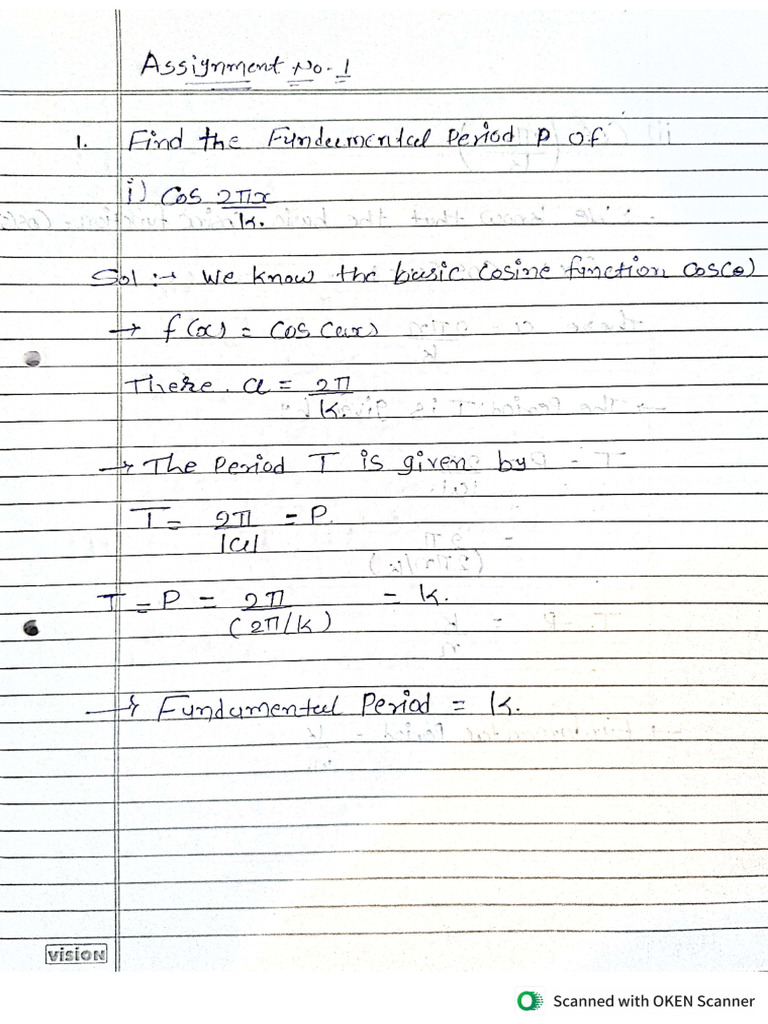 Assignment No. 1
1. Find the Fundamental Period P of
i) Cos 2πx/k.
Sol :→ We know the basic Cosine function COS(θ)
→ f(x) = COS(ax)
There. a = 2π/k.
→ The Period T is given by
T = 2π/|a| = P.
T = P = 2π/(2π/k) = k.
→ Fundamental Period = k.
VISION
Scanned with OKEN Scanner